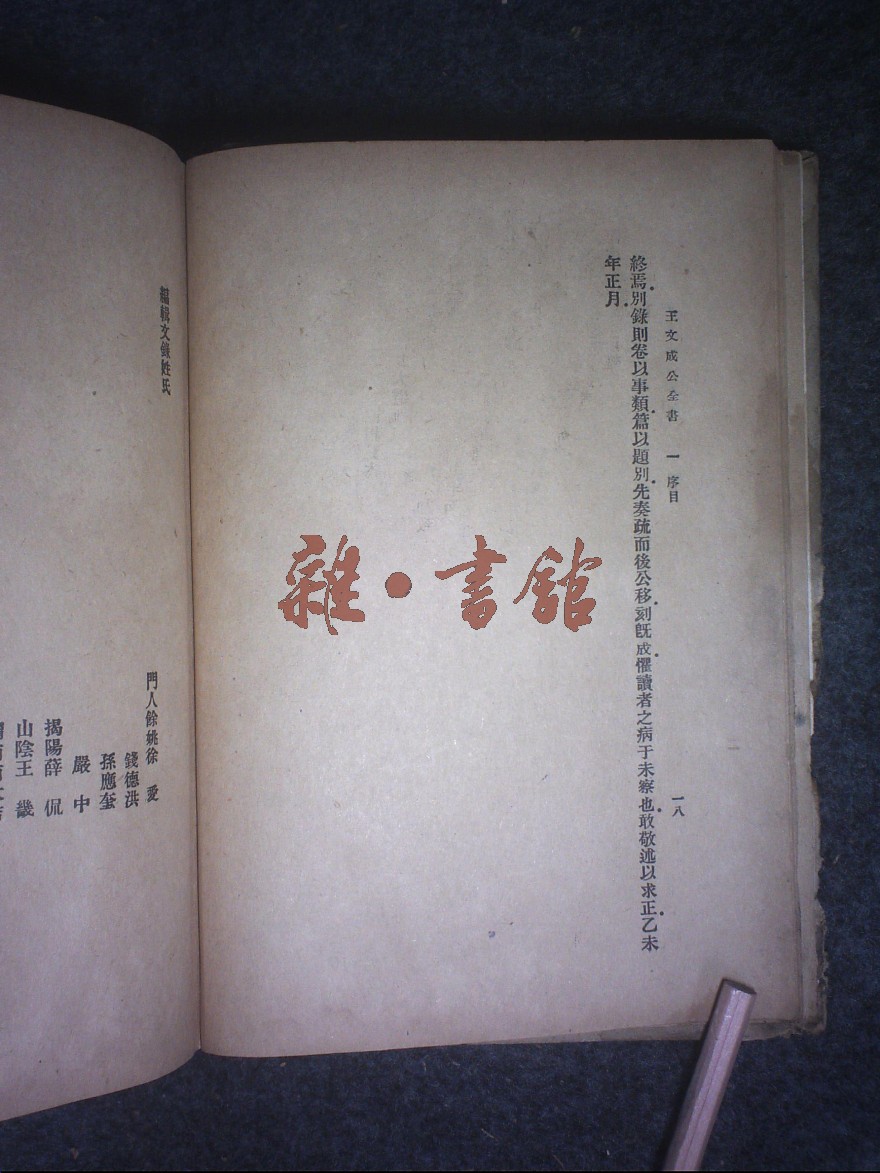 王文成公全書 一 序目 一八
終焉．別錄則卷以事類．篇以題別．先奏疏而後公移．刻旣成．懼讀者之病于未察也．敢敬述以求正．乙未
年正月．
編輯文錄姓氏
門人餘姚徐 愛
錢德洪
孫應奎
嚴 中
揭陽薛 侃
山陰王 畿
雜·書館